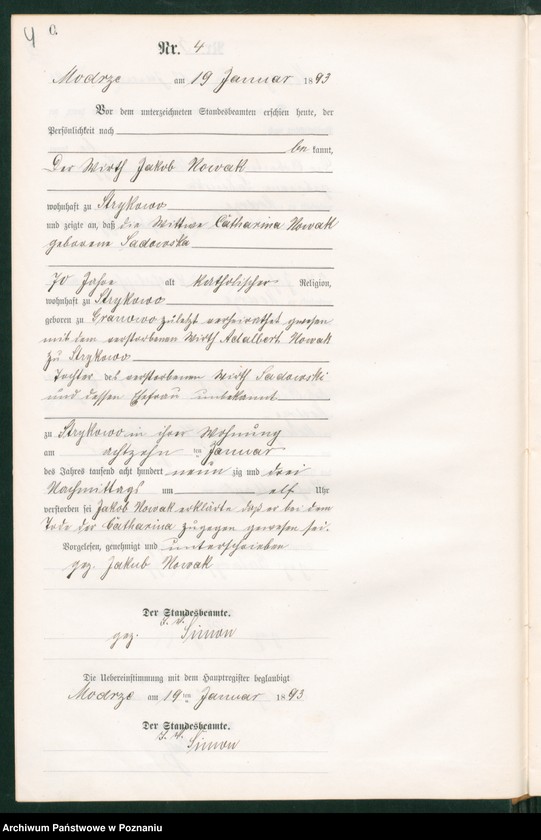 4
C.
Nr. 4
Modrze am 19 Januar 1893
Vor dem unterzeichneten Standesbeamten erschien heute, der
Persönlichkeit nach
be kannt,
Der Wirth Jakob Nowak
wohnhaft zu Strykowo
und zeigte an, daß die Wittwe Catharina Nowak
geborene Sadowska
70 Jahre alt katholischer Religion,
wohnhaft zu Strykowo
geboren zu Granowo zuletzt verheirathet gewesen
mit dem verstorbenen Wirth Adalbert Nowak
zu Strykowo
Tochter des verstorbenen Wirth Sadowski
und dessen Ehefrau unbekannt
zu Strykowo in ihrer Wohnung
am achtzehn ten Januar
des Jahres tausend acht hundert neun zig und drei
Nachmittags um elf Uhr
verstorben sei Jakob Nowak erklärte daß er bei dem
Tode der Catharina zugegen gewesen sei.
Vorgelesen, genehmigt und unterschrieben
gez. Jakub Nowak
Der Standesbeamte.
I. V.
gez. Simon
Die Uebereinstimmung mit dem Hauptregister beglaubigt
Modrze am 19 ten Januar 1893
Der Standesbeamte.
I. V.
Simon
Archiwum Państwowe w Poznaniu